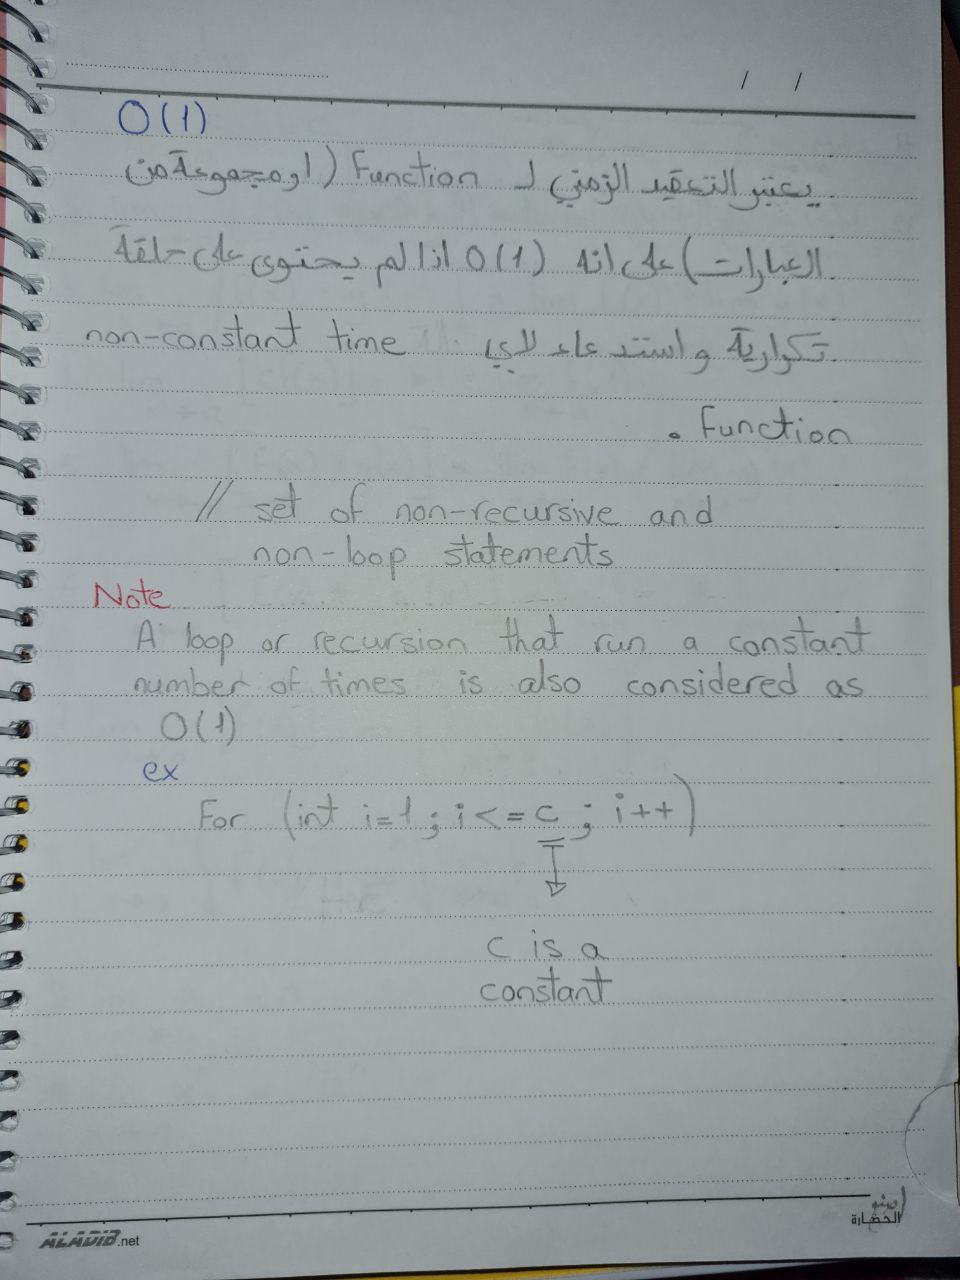 / /
O(1)
يعتبر التعقيد الزمني لـ Function (او مجموعة من
العبارات) على انه O(1) اذا لم يحتوى على حلقة
تكرارية و استدعاء لاي non-constant time
Function .
// set of non-recursive and
non-loop statements
Note
A loop or recursion that run a constant
number of times is also considered as
O(1)
ex
For (int i=1; i<=c; i++)
c is a
constant
الحضارة
ALADIB.net